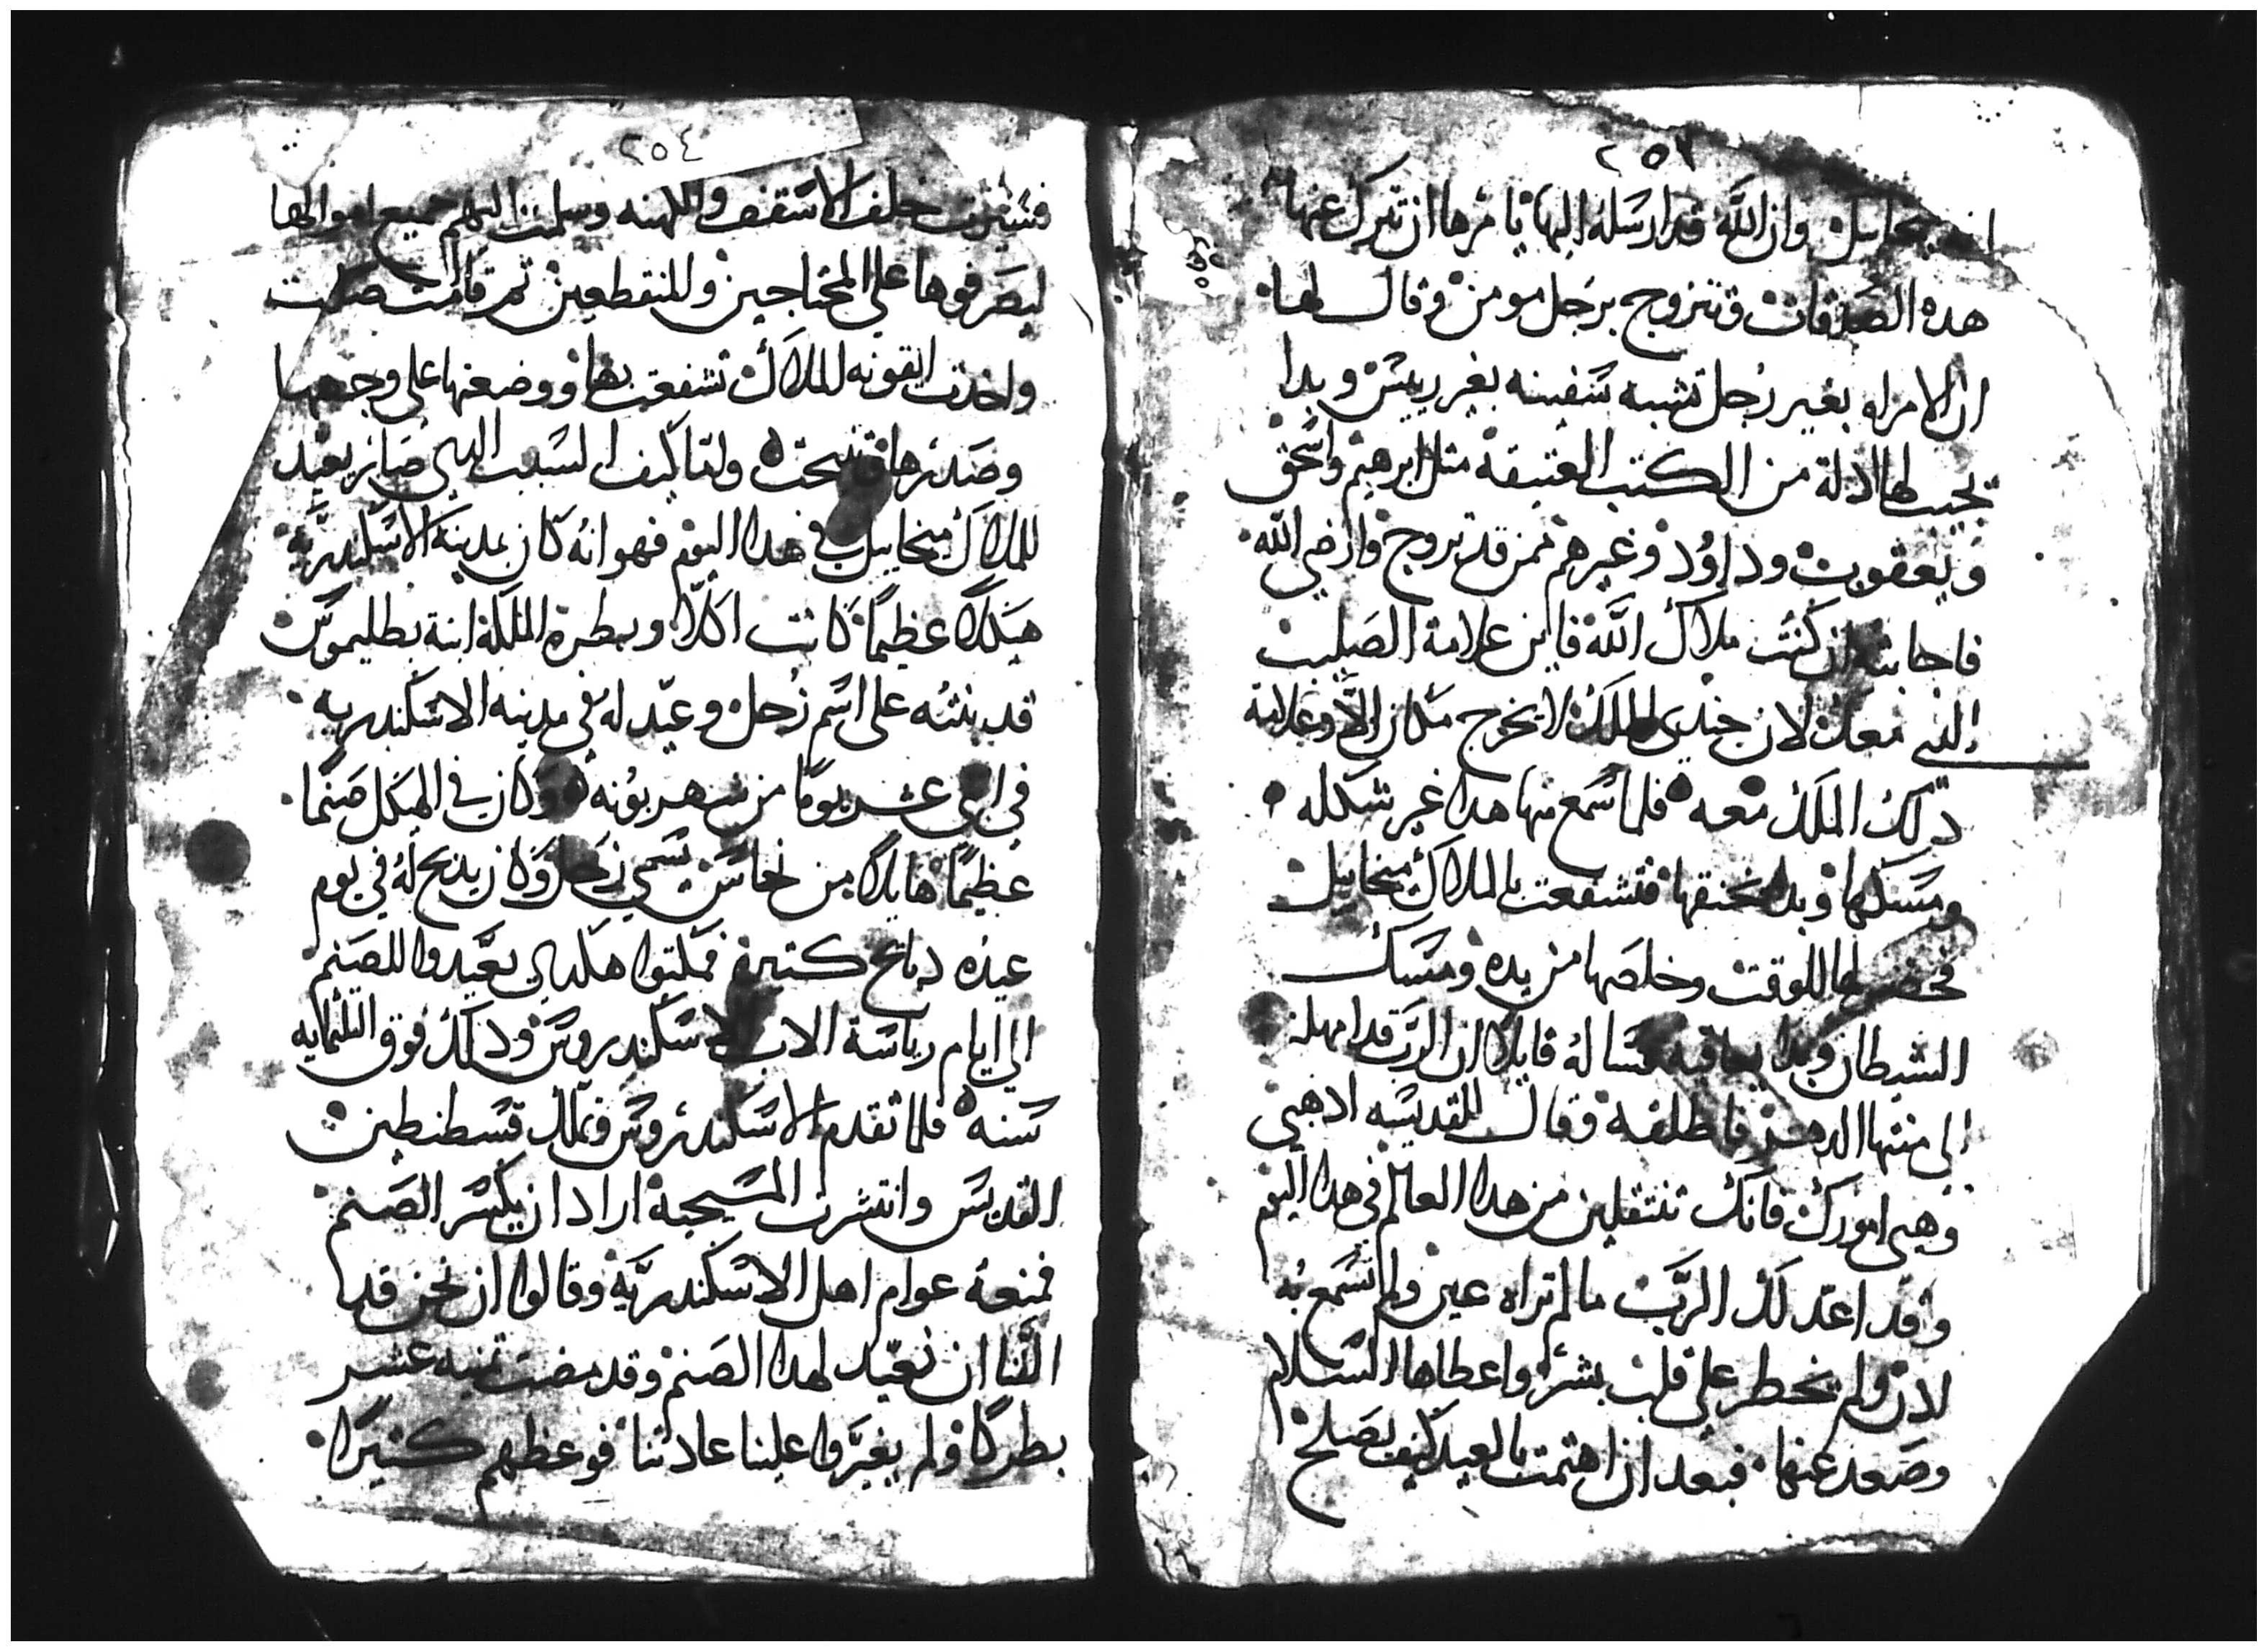 ٢٥٣
انه ميخاييل وان الله قد ارسله اليها يامرها ان تترك عنها
هده الصدقات وتتزوج برجل مومن وقال لها
ان الامراه بغير رجل تشبه سفينه بغير رييس وبدا
يجيب لها ادلة من الكتب العتيقة متل ابرهيم واسحق
ويعقوب وداوود وغيرهم ممن قد تزوج وارضي الله
فاجابته ان كنت ملاك الله فاين علامة الصليب
التي معك لان جندي الملك لا يخرج مكان الا وعلامة
دلك الملك معه فلما سمع منها هدا غير شكله
ومسكها وبدا يخنقها فتشفعت بالملاك ميخاييل
فحضر لها للوقت وخلصها من يده ومسك
الشيطان وبدا يعاقبه فساله قايلا ان الرب قد امهله
الي منتها الدهر فاطلقه وقال للقديسه ادهبي
وهيي امورك فانك تنتقلين من هدا العالم في هدا اليوم
وقد اعد لك الرب ما لم تراه عين ولم تسمع به
ادن ولم يخطر علي قلب بشر واعطاها السلام
وصعد عنها فبعد ان اهتمت بالعيد كيف يصلح
٢٥٤
خلف الاسقف والكهنه وسلمت اليهم جميع اموالها
ليصرفوها علي المحتاجين والمنقطعين تم قامت صلت
واخدت ايقونه الملاك تشفعت بها ووضعتها علي وجهها
وصدرها وتنيحت ولقا كيف السبب الدي صار نعيد
للملاك ميخاييل في هدا اليوم فهو انه كان بمدينة الاسكندرية
هيكلا عظيما كانت اكلاوبطره الملكة ابنة بطليموس
قد بنته علي اسم زحل وعيد له في مدينه الاسكندريه
في اتني عشر يوما من شهر بوونه وكان في الهيكل صنما
عظيما هايلا من نحاس يسمي زحل وكان يدبح له في يوم
عيده دبايح كتيره فمكتوا هكدي يعيدوا للصنم
الي ايام رياسة الاب الاسكندروس ودلك فوق التلتمايه
سنه فلما تقدم الاسكندروس وتملك قسطنطين
القديس وانتشرت المسيحية اراد ان يكسر الصنم
فمنعه عوام اهل الاسكندرية وقالوا ان نحن قد
الفنا ان نعيد لهدا الصنم وقد مضت تمنيه عشر
بطركا ولم يغيروا علينا عادتنا فوعظهم كتيرا